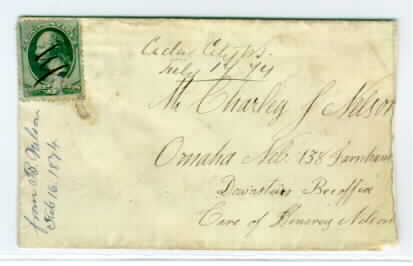 Cedar City Ws.
Feby 14 74
Mr Charley J Nelson
Omaha Neb. 138 Farnham
Downstairs
Care of Nelson
from Nelson
Feb 16. 1874